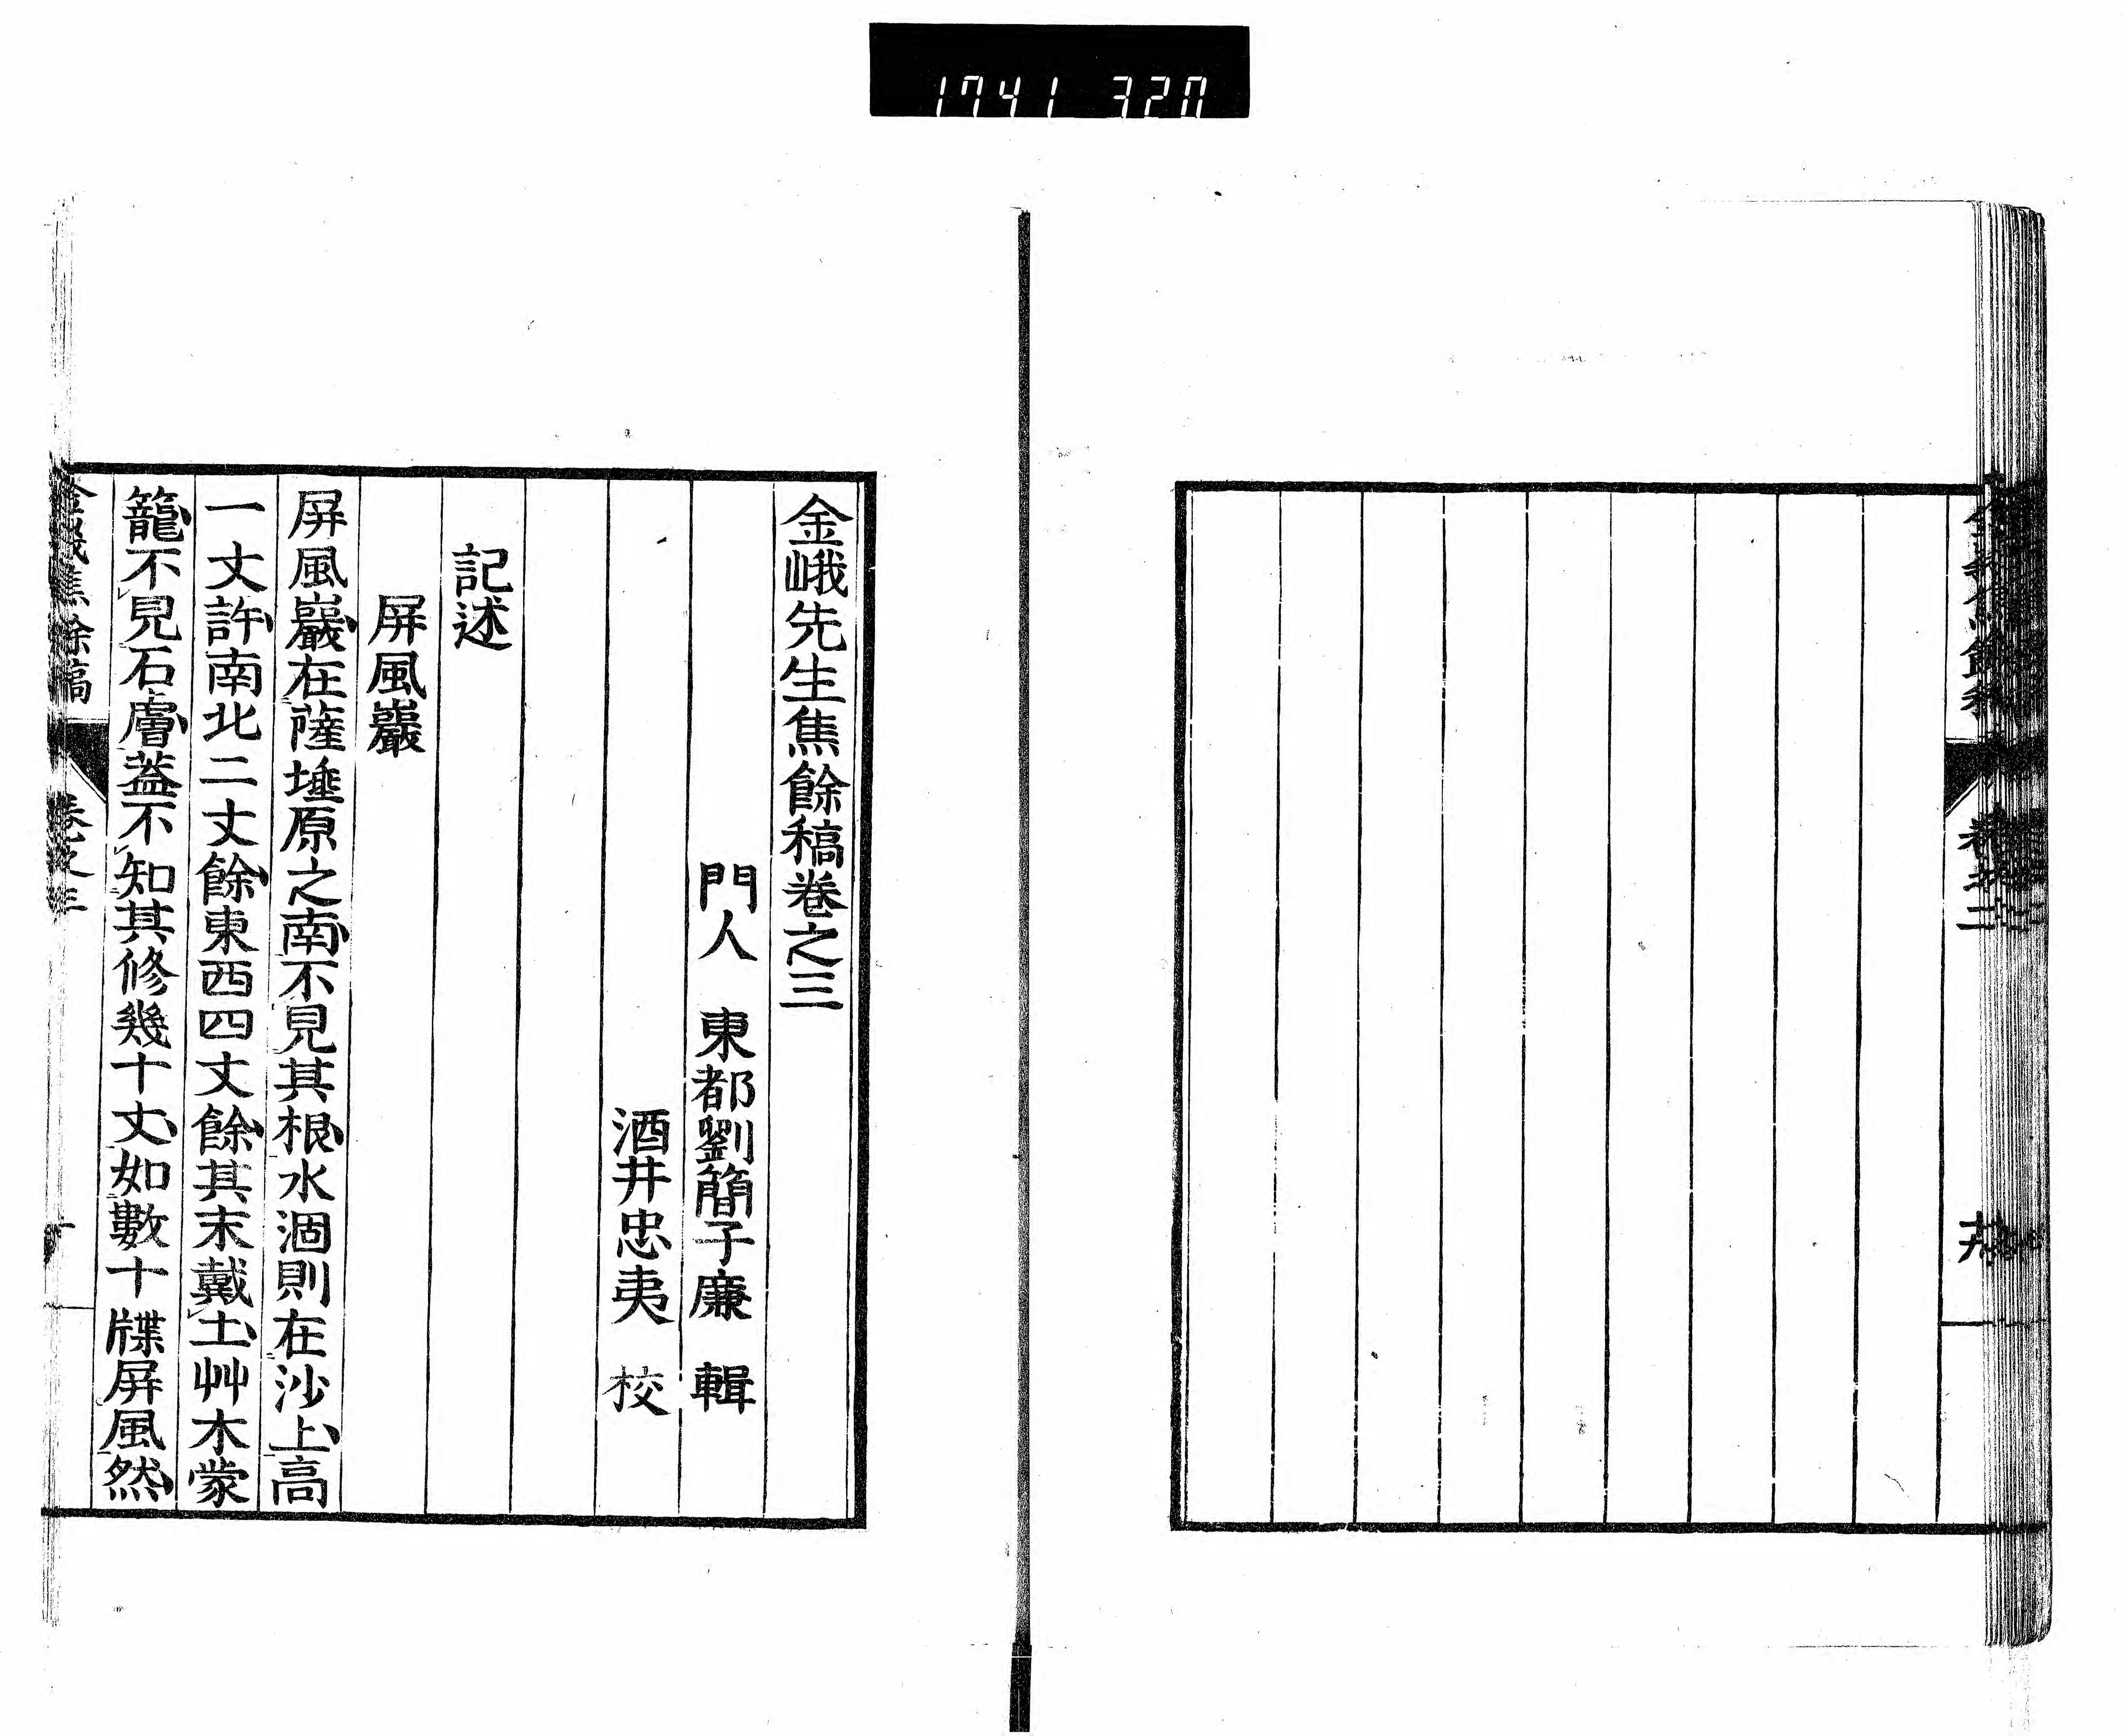 1741 320
金峨先生焦餘稿卷之三
門人 東都劉簡子廉 輯
酒井忠夷 校
記述
屏風巖
屏風巖在薩埵原之南不見其根水涸則在沙上高
一丈許南北二丈餘東西四丈餘其末戴土艸木蒙
籠不見石膚蓋不知其修幾十丈如數十牒屏風然